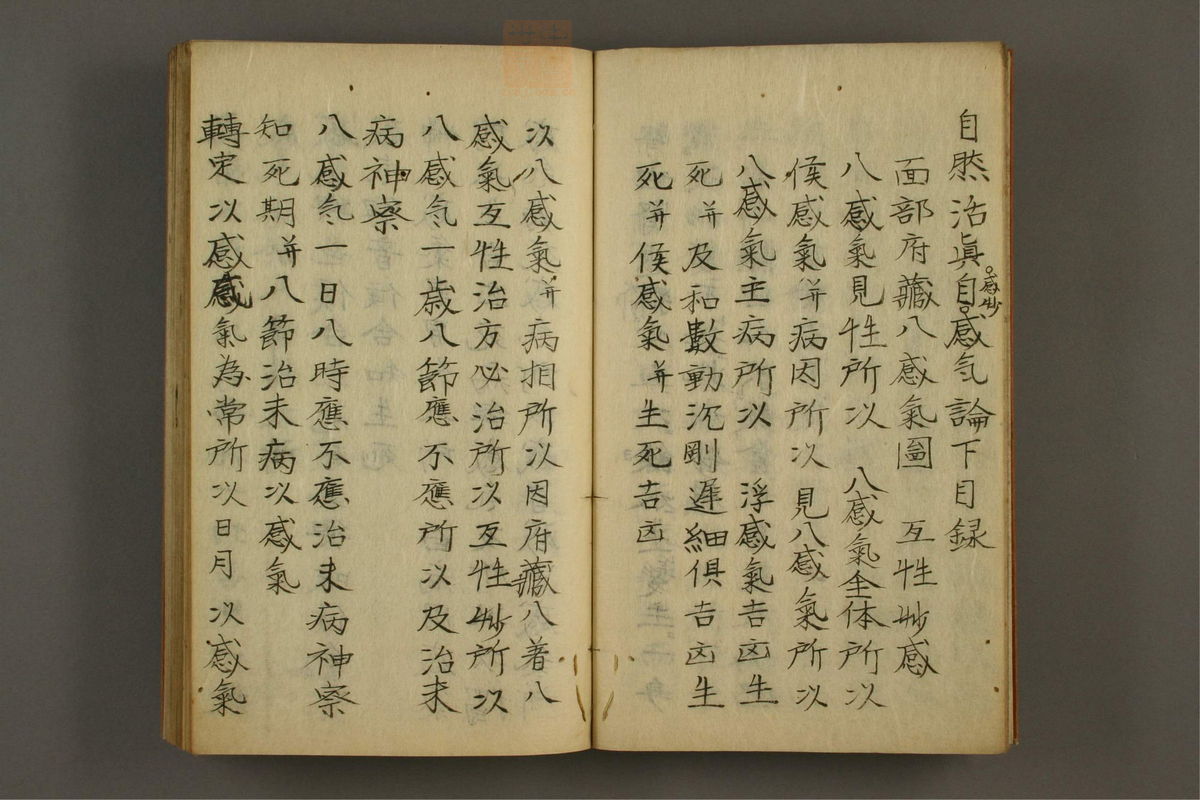 自然治眞自感気論下目録
感妙
面部府藏八感氣圖　互性妙感
八感氣見性所以　八感氣全体所以
候感氣并病因所以見八感氣所以
八感氣主病所以　浮感氣吉凶生
死并及和數動沉剛遲細俱吉凶生
死并候感氣并生死吉凶
以八感氣并病相所以因府藏八著八
感氣互性治方必治所以互性妙所以
八感気一歳八節應不應所以及治未
病神察
八感気一日八時應不應治未病神察
知死期并八節治未病以感氣
轉定以感感氣為常所以日月以感氣